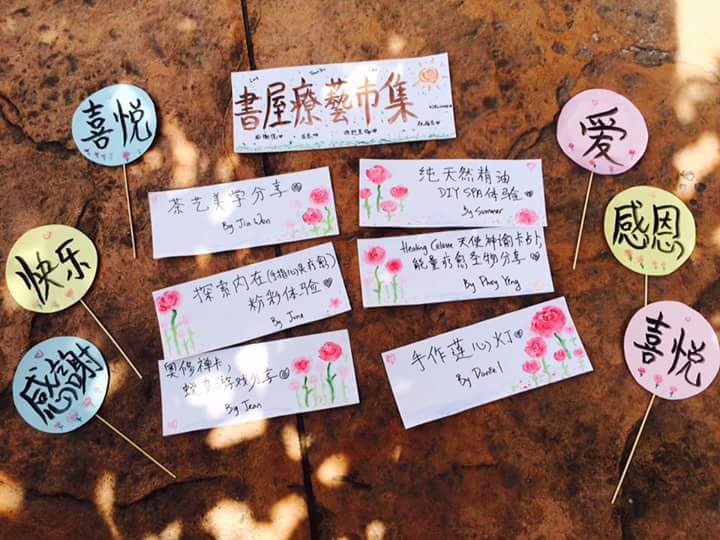 書屋療藝市集
喜悦
快乐
感謝
茶艺美学分享
By Jin Wen
探索内在(手指心灵疗愈)
粉彩体验
By June
奥修禅卡,
蜕变游戏分享
By Jean
纯天然精油
DIY SPA体验
By Summer
Healing Colour 天使神谕卡占卜,
能量疗愈圣物分享
By Phey Yeng
手作莲心灯
By Daniel
爱
感恩
喜悦